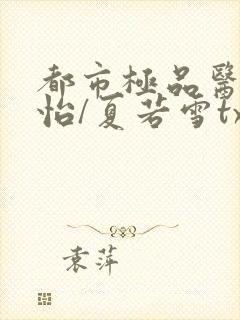 都市極品醫
怡/夏若雪tx
袁萍